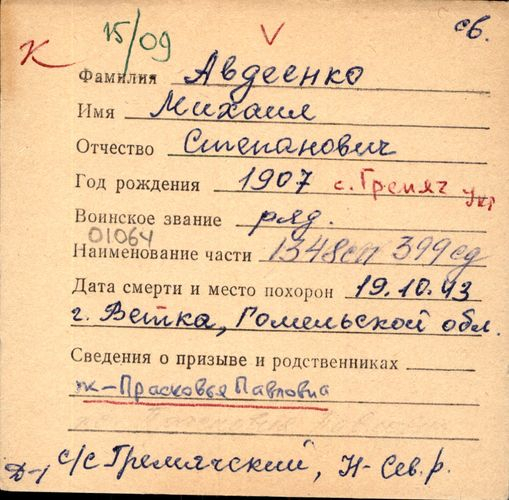 К 15/09 V св.
Фамилия Авдеенко
Имя Михаил
Отчество Степанович
Год рождения 1907 с. Гремяч Укр
Воинское звание ряд.
01064
Наименование части 1348сп 399сд
Дата смерти и место похорон 19.10.43
г. Ветка, Гомельской обл.
Сведения о призыве и родственниках
ж-Прасковья Павловна
Д-1 с/с Гремячский, Н-Сев. р.